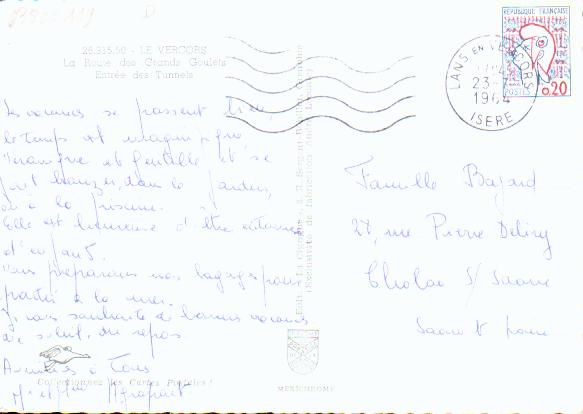 26.315.50 - LE VERCORS
La Route des Grands Goulets
Entrée des Tunnels
Les vacances se passent bien,
le temps est magnifique
est gentille et se
fait bronzer, dans le jardin,
ou à la piscine.
Elle est heureuse d'être
d'enfants.
Nous préparons nos bagages pour
partir à la mer.
Je vous souhaite de bonnes vacances
de soleil, de repos
Amitiés à Tous
M et Mme
Collectionnez les Cartes Postales !
MEXICHROME
RÉPUBLIQUE FRANÇAISE
POSTES 0,20
LANS EN VERCORS
23-7
1964
ISERE
Famille Bajard
27, rue Pierre Deliry
Chalon S/ Saone
Saone et Loire